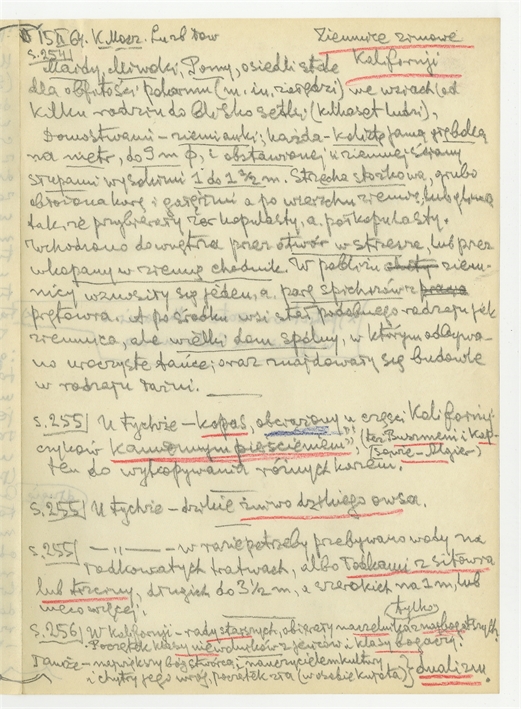 15 X 64. K. Mosz. Ludb Dow
Ziemnice zimowe
Kalifornji
s. 254|
Maidy, Miwoki, Pomy, osiedli stale
dla obfitości pokarmu (m. in. żołędzi) we wsiach (od
kilku rodzin do blisko setki (kilkaset ludzi).
Domostwami - ziemianki; każda - kolista jama głęboka
na metr, do 9 m ϕ, i obstawionej w ziemnej ściany
słupami wysokimi 1 do 1 1/2 m. Strzecha stożkowa, grubo
obłożona korą i gałęźmi a po wierzchu ziemią, lub gliną
tak, że przybierały kopulasty, a. półkopulasty.
Wchodzono do wnętrza przez otwór w strzesze, lub przez
wkopany w ziemię chodnik. W pobliżu ziem-
nicy wznosiły się jeden, a. parę spichrzów z
prętowia. A pośrodku wsi stał podobnego rodzaju jak
ziemnica, ale wielki dom spólny, w którym odbywa-
no uroczyste tańce; oraz znajdowały się budowle
w rodzaju łaźni.
s. 255| U tychże - kopas, obciążony u części Kaliforni-
czyków kamiennym pierścieniem, (też Buszmeni i
ten do wykopywania różnych korzeni.
s. 255| U tychże - dzikie żniwo dzikiego owsa.
s. 255| — „ — - w razie potrzeby przebywano wody na
tratwach, albo łódkami z sitowia
lub trzciny, długich do 3 1/2 m, a szerokich na 1 m, lub
nieco więcej.
tylko
s. 256| W Kalifornji - rady starszych, obierały naczelnika z najbogatszych.
Początek klasy niewolników z jeńców i klasy bogaczy.
Tamże - największy bóg stwórca i nauczycielem kultury
i chytry jego wróg, początek zła (w osobie kujota) } dualizm.